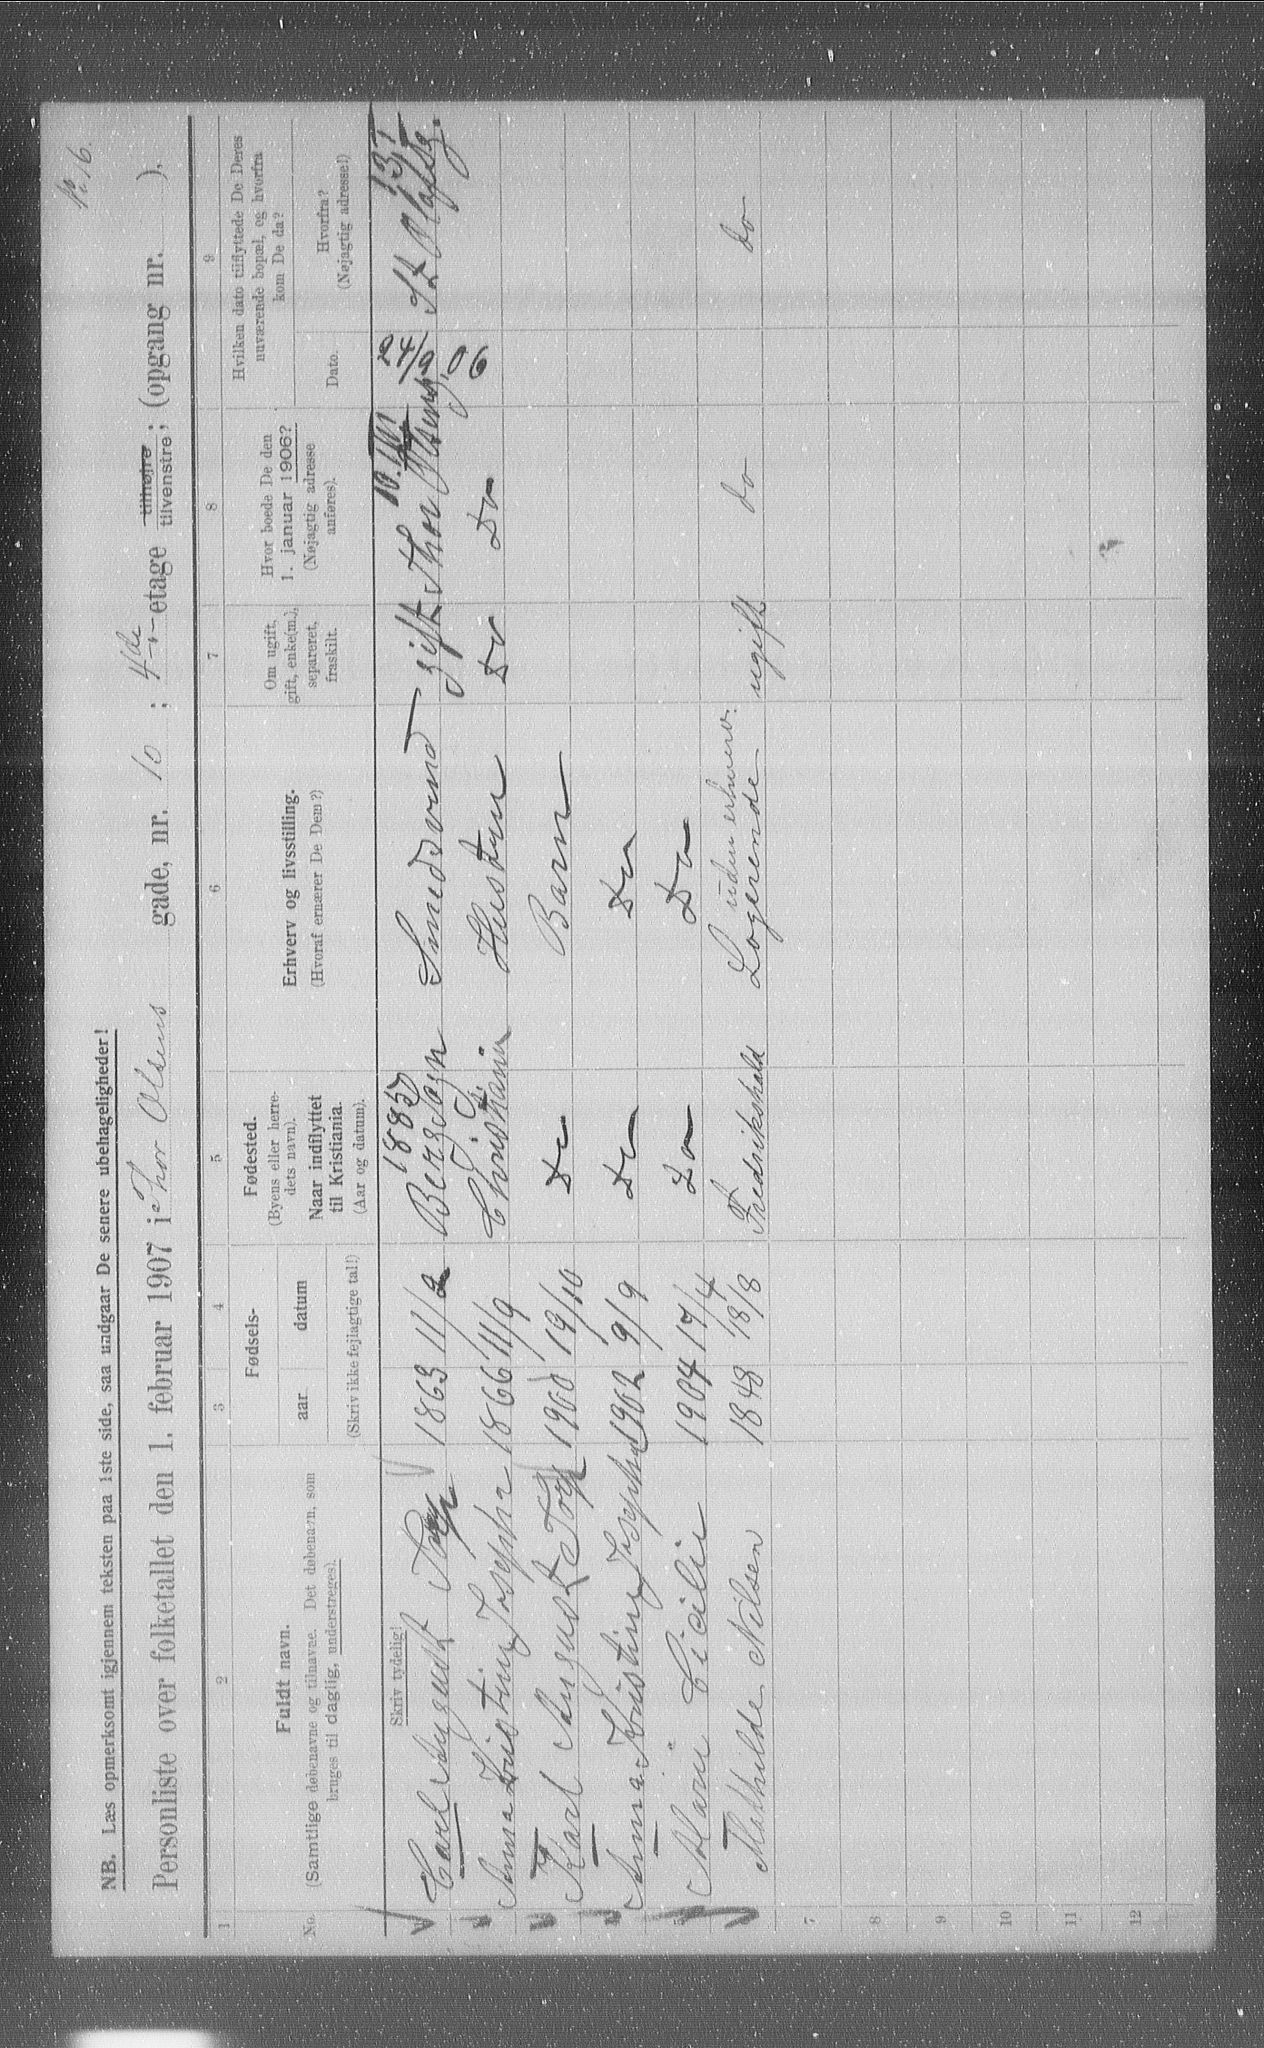 No. 6.
NB. Læs opmerksomt igjennem teksten paa 1ste side, saa undgaar De senere ubehageligheder!
Personliste over folketallet den 1. februar 1907 i Thor Olsens gade, nr. 10 ; 4de etage tilhøire tilvenstre; (opgang nr. ).
1 2 3 4 5 6 7 8 9
No.
Fuldt navn.
(Samtlige døbenavne og tilnavne. Det døbenavn, som
bruges til daglig, understreges).
Skriv tydelig!
Fødsels-
aar datum
(Skriv ikke fejlagtige tal!)
Fødested.
(Byens eller herre-
dets navn).
Naar indflyttet
til Kristiania.
(Aar og datum).
Erhverv og livsstilling.
(Hvoraf ernærer De Dem?)
Om ugift,
gift, enke(m.),
separeret,
fraskilt.
Hvor boede De den
1. januar 1906?
(Nøjagtig adresse
anføres).
Hvilken dato tilflyttede De Deres
nuværende bopæl, og hvorfra
kom De da?
Dato.
Hvorfra?
(Nøjagtig adresse!)
1885
Carl August 1863 11/2 Smedsvend gift Thor Olsensg. 24/9 06 St Olafsg.
Anna Kristine Josepha 1866 11/9 Christiania Hustru Do Do
Karl August Torp 1900 19/10 Do Barn
Anna Kristine Josepha 1902 9/9 Do Do
5 Marie Cicilie 1904 17/4 Do Do
Mathilde Nilsen 1848 18/8 Fredrikshald uden erhverv. Logerende ugift do do
7
8
9
10
11
12